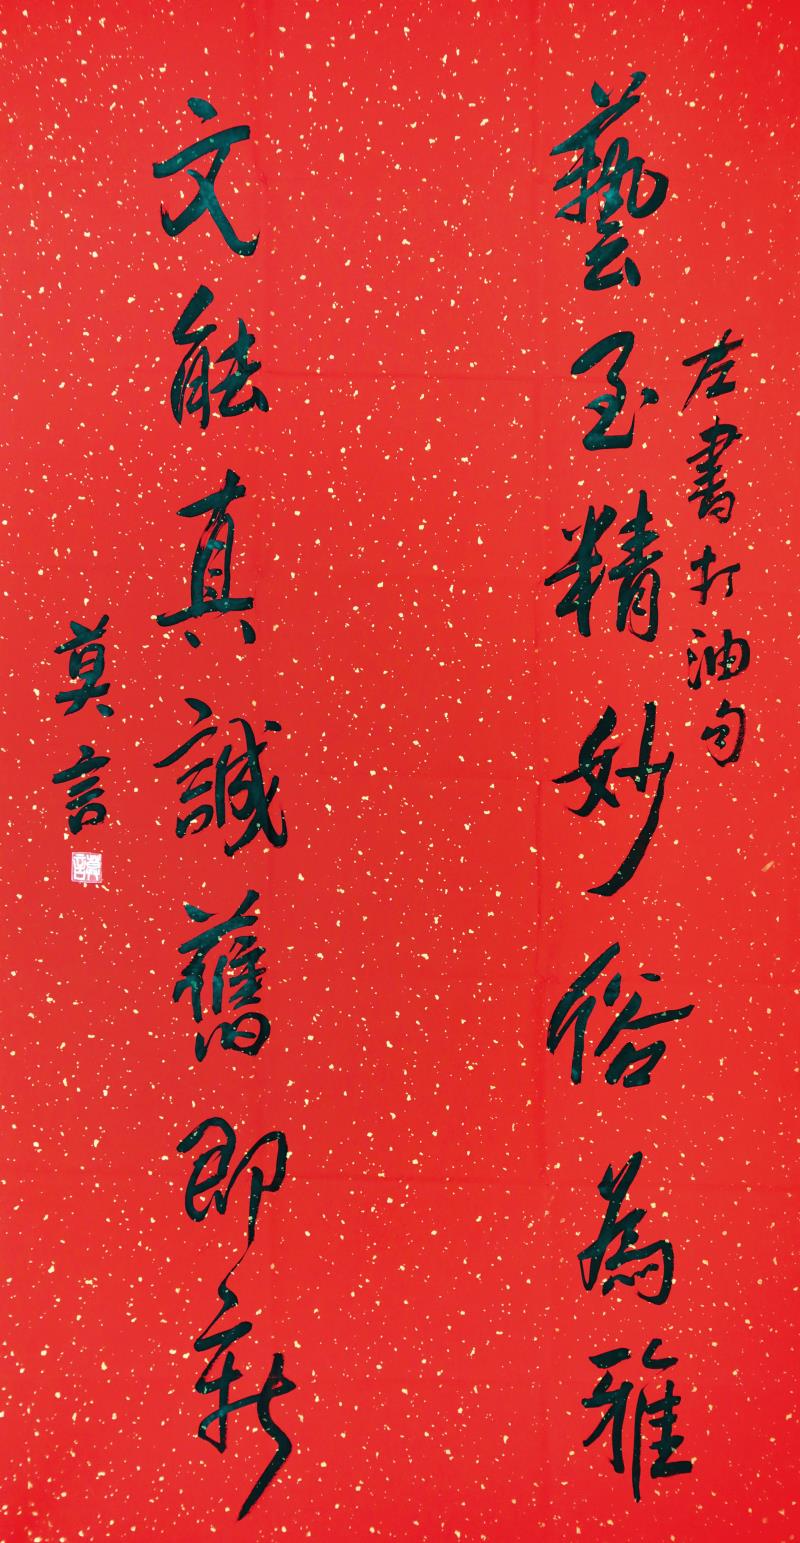 左書打油句
藝至精妙俗為雅
文能真誠舊即新
莫言
莫言